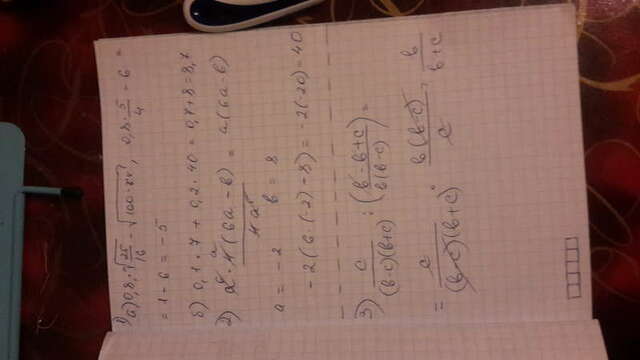 1) а) 0,8·√(25/16) - √(100·0,36), 0,8·5/4 - 6 =
= 1 - 6 = -5
б) 0,1·7 + 0,2·40 = 0,7 + 8 = 8,7
2) a²·4(6a - b) / 4a = a(6a - b)
a = -2 b = 8
-2(6·(-2) - 8) = -2(-20) = 40
3) c/((b-c)(b+c)) : ((b - b + c)/(b(b-c))) =
= c/((b-c)(b+c)) · b(b-c)/c , b/(b+c)